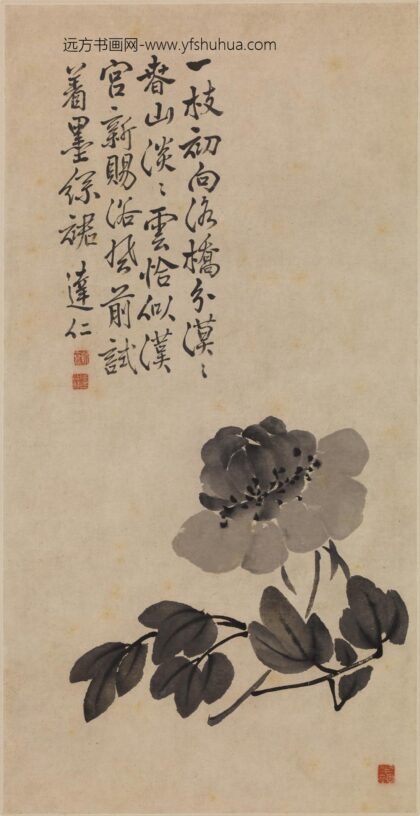 远方书画网-www.yfshuhua.com
一枝初向洛橋分漠〻
春山淡〻雲恰似漢
宮新賜浴風前試
着墨裙 達仁